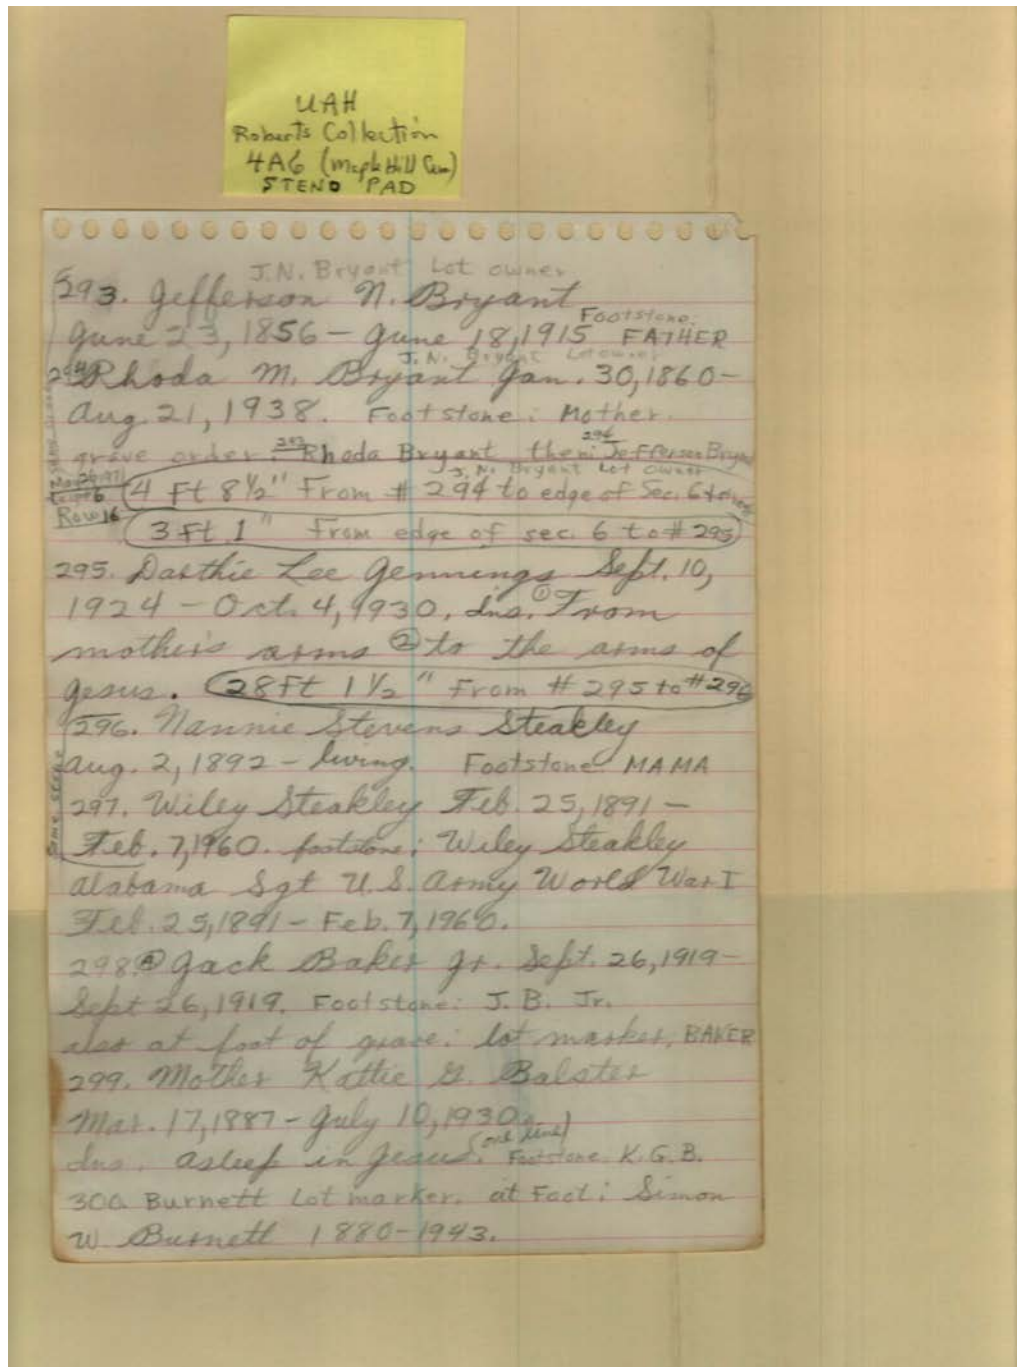 UAH
Roberts Collection
4A6 (Maple Hill Cem)
STENO PAD
J.N. Bryant Lot owner
293. Jefferson N. Bryant
June 23, 1856 – June 18, 1915 Footstone: FATHER
J.N. Bryant Lot owner
294 Rhoda M. Bryant Jan. 30, 1860 –
Aug. 21, 1938. Footstone: Mother.
grave order: 293 Rhoda Bryant, then: 294 Jefferson Bryant
J.N. Bryant Lot owner
4 Ft 8 1/2" From # 294 to edge of Sec. 6
Row 16
3 Ft 1" From edge of sec. 6 to # 295
295. Dasthie Lee Jennings Sept. 10,
1924 – Oct. 4, 1930. Ins. ① From
mother's arms ② to the arms of
Jesus. 28 Ft 1 1/2" From # 295 to # 296
296. Nannie Stevens Steakley
Aug. 2, 1892 – living. Footstone: MAMA
297. Wiley Steakley Feb. 25, 1891 –
Feb. 7, 1960. footstone: Wiley Steakley
Alabama Sgt U.S. Army World War I
Feb. 25, 1891 – Feb. 7, 1960.
298. Ⓐ Jack Baker Jr. Sept. 26, 1919 –
Sept 26, 1919. Footstone: J. B. Jr.
also at foot of grave: lot marker, BAKER
299. Mother Kattie G. Balster
Mar. 17, 1887 – July 10, 1930.
Ins. Asleep in Jesus. (one line) Footstone K.G.B.
300. Burnett Lot marker. at Foot: Simon
W. Burnett 1880–1943.